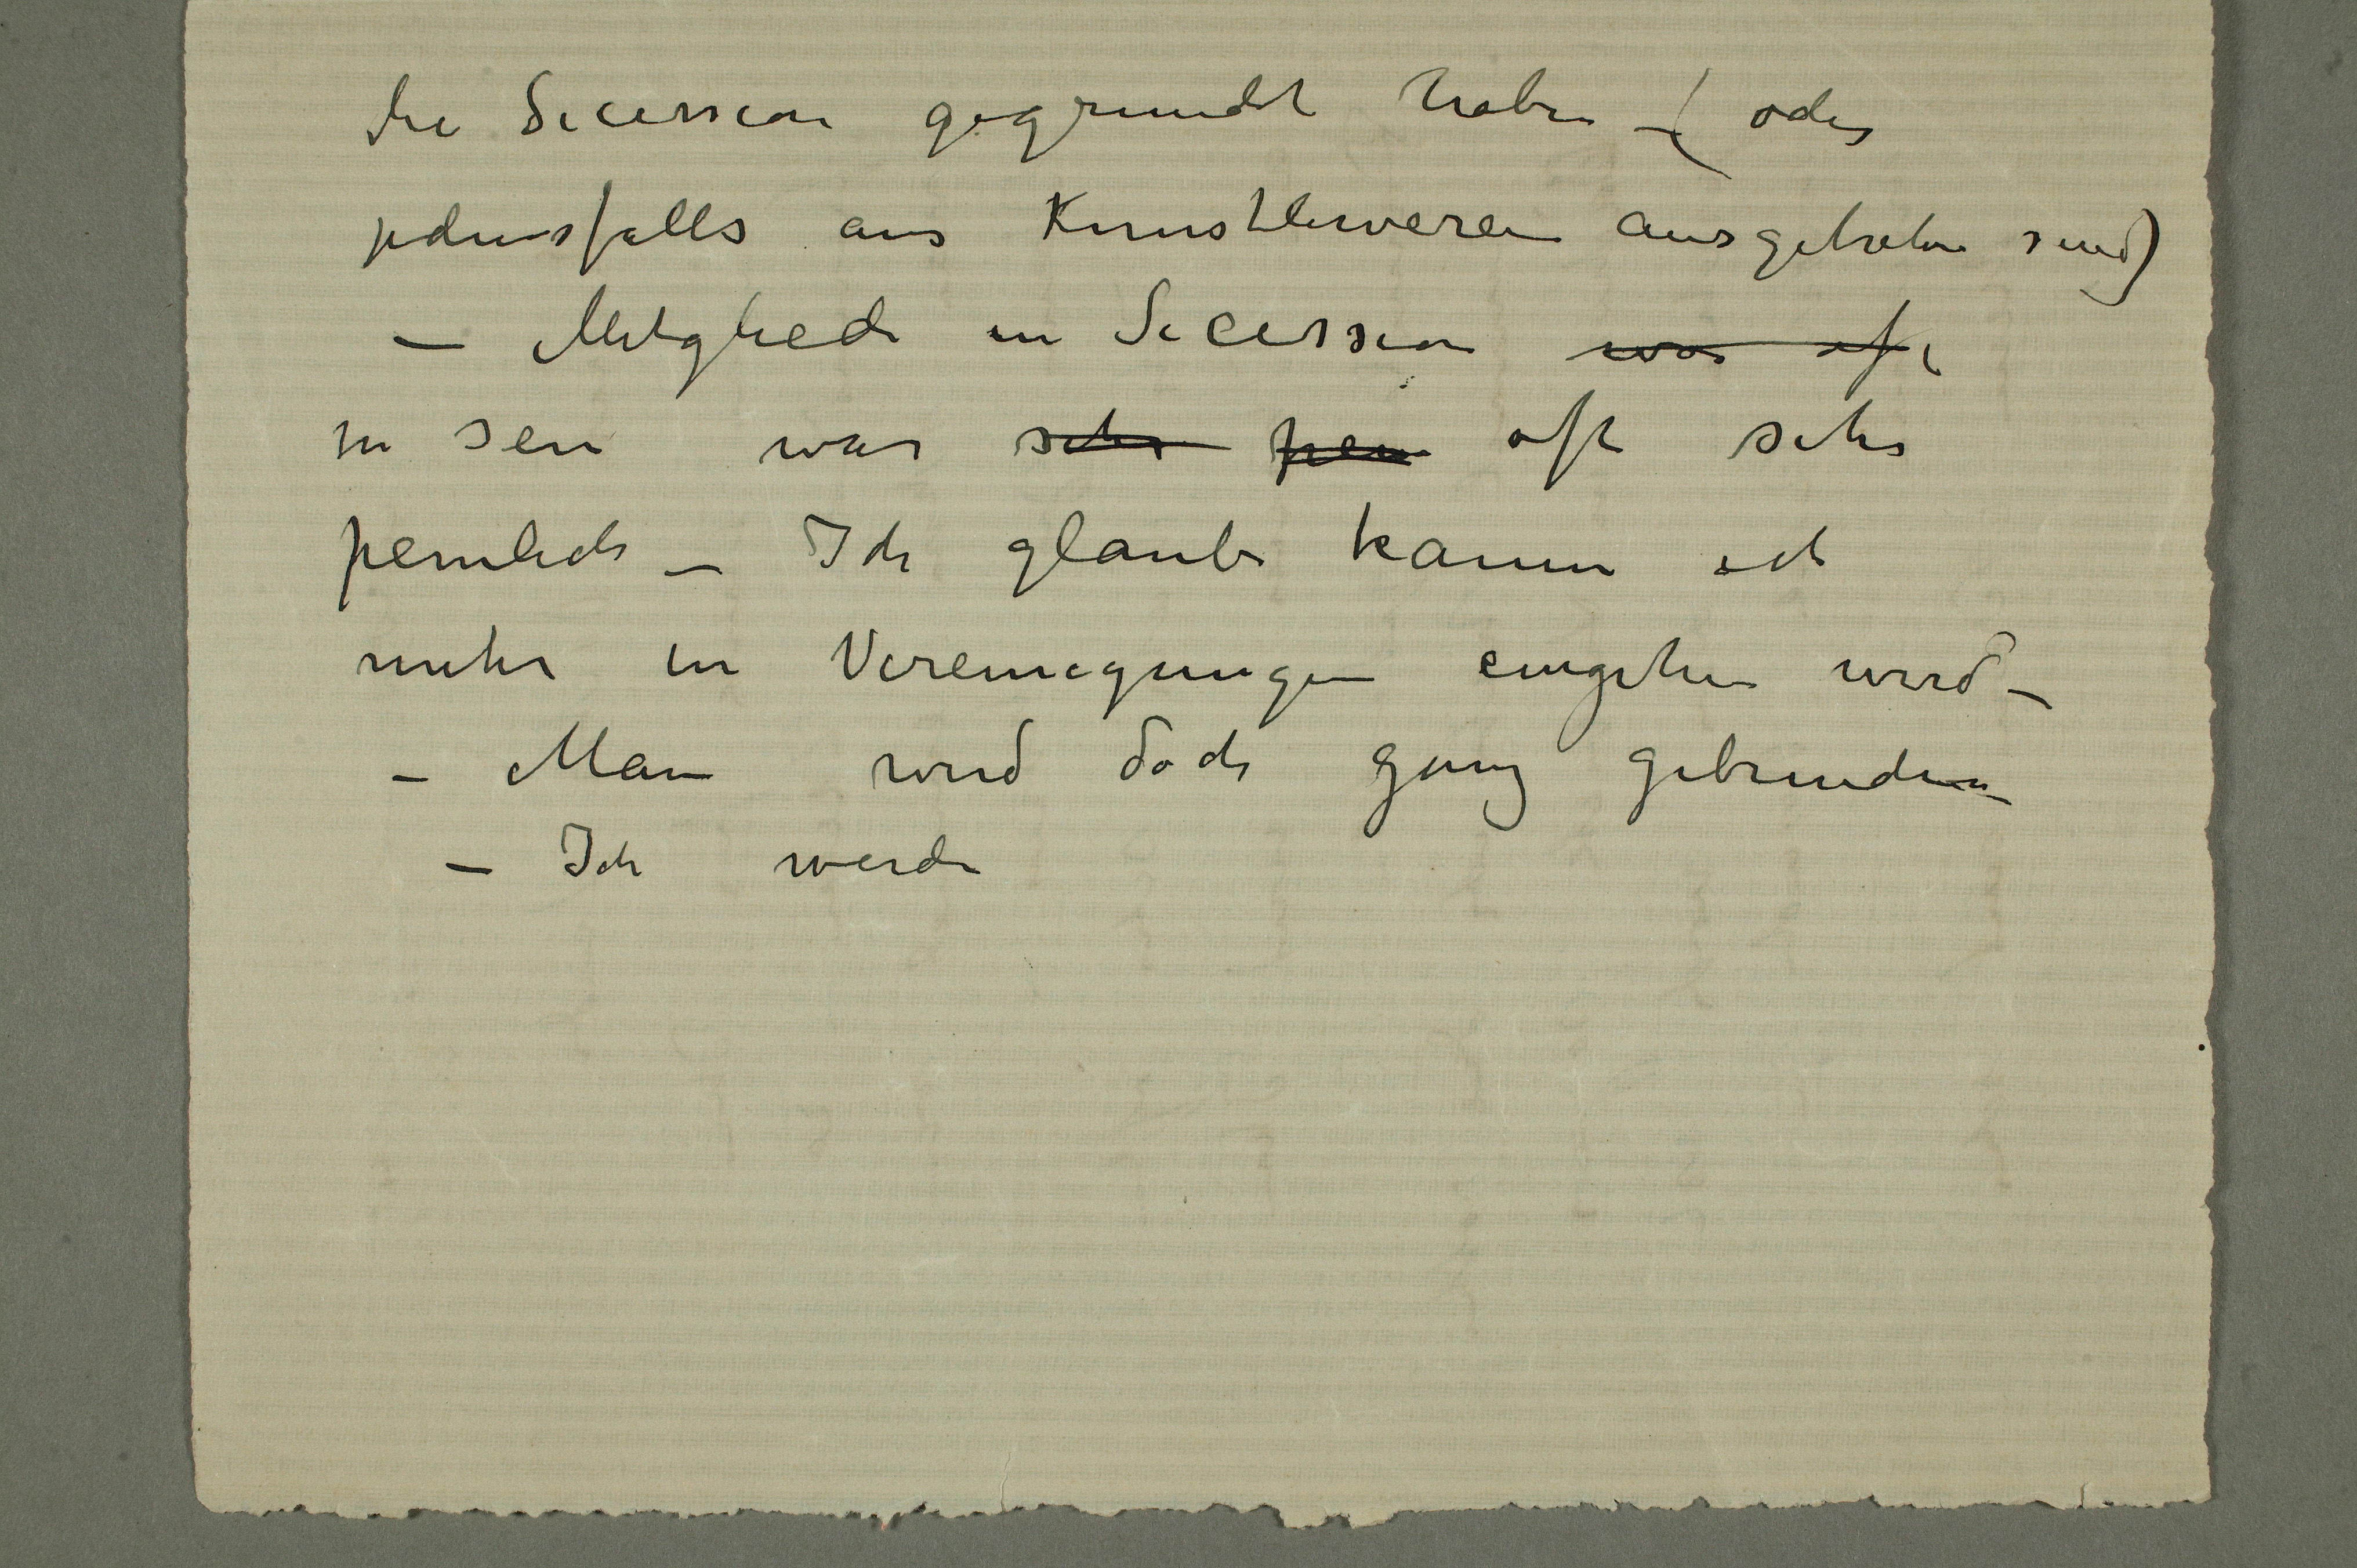 die Secession gegrundet haben – (oder
jedensfalls aus Kunstlerverein ausgetreten sind)
– Mitglied in Secession war oft
zu sein war sehr pein oft sehr
peinlich – Ich glaube kaum ich
mehr in Vereinigungen eingehen wird –
– Man wird doch ganz gebunden –
– Ich werde